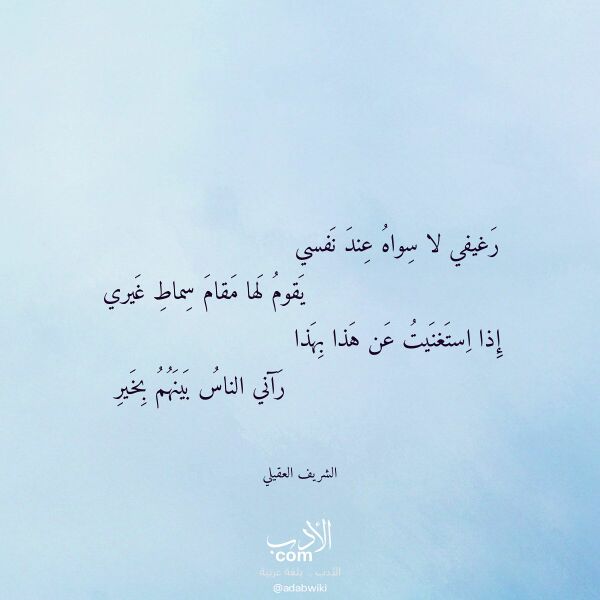 رَغيفي لا سِواهُ عِندَ نَفسي
يَقومُ لَها مَقامَ سِماطِ غَيري
إِذا اِستَغنَيتُ عَن هَذا بِهَذا
رَآني الناسُ بَينَهُمُ بِخَيرِ
الشريف العقيلي
الأدب
com
الأدب .. بلغة عربية
@adabwiki